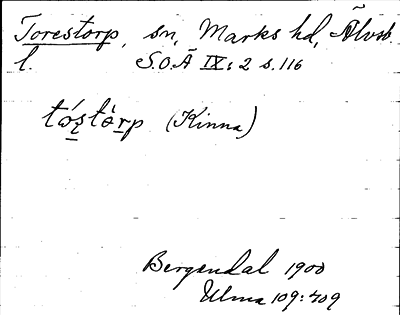 Torestorp, sn, Marks hd, Älvsb.
l. S.O.Ä IX:2 s. 116
(Kinna)
Bergendal 1900
Ulma 109:409